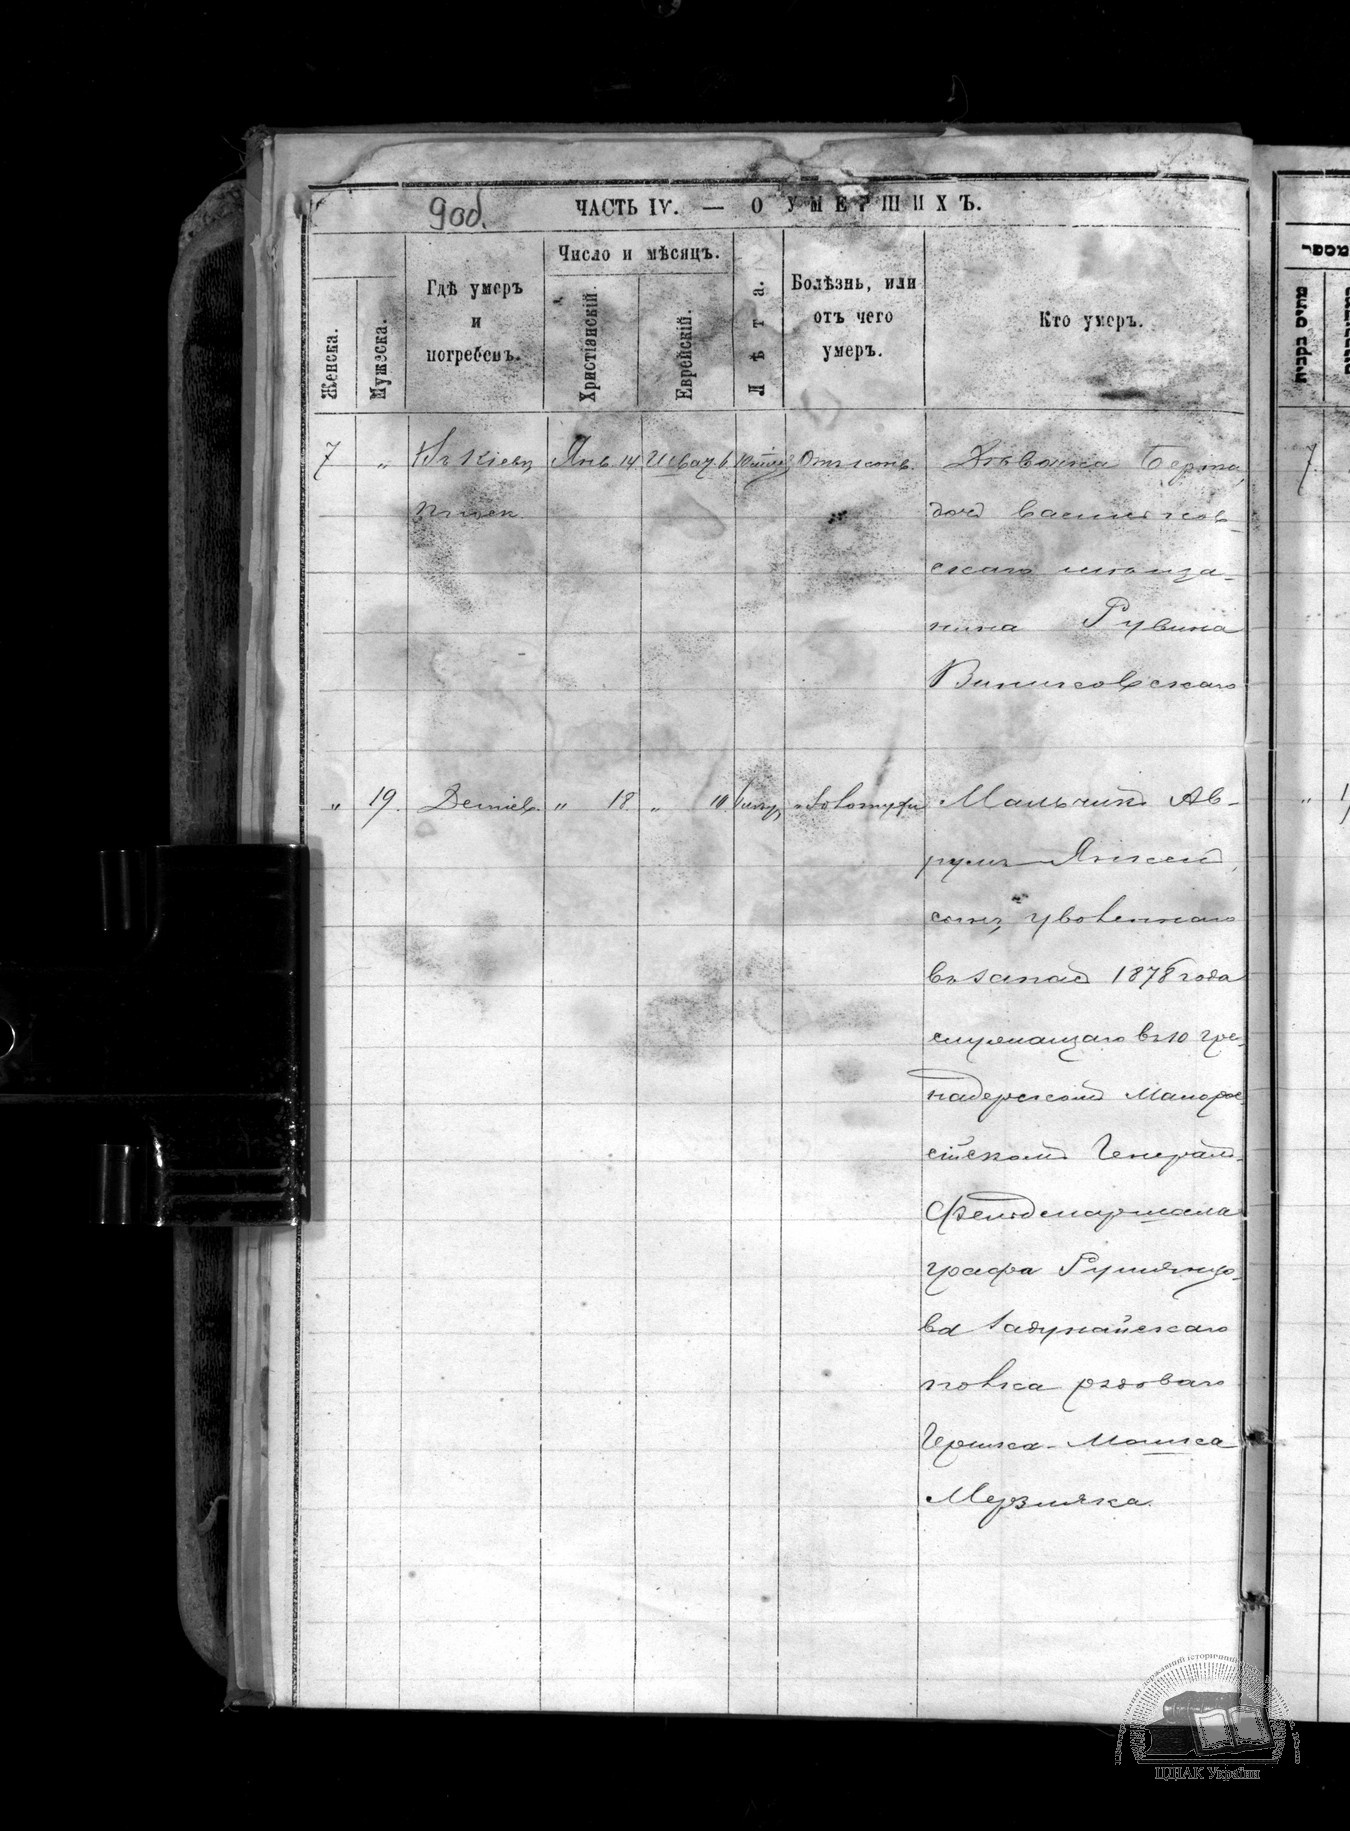 900б.
ЧАСТЬ IV. — О УМЕРШИХЪ.
Женска.
Мужеска.
Гдѣ умеръ
и
погребенъ.
Число и мѣсяцъ.
Христіанскій.
Еврейскій.
Лѣта.
Болѣзнь, или
отъ чего
умеръ.
Кто умеръ.
7 „ Въ Кіевѣ Янв. 14
Дѣвочка Берта,
дочь васильков-
скаго мѣща-
нина Рувина
Виниковскаго
„ 19. Деміев. „ 18 „ 10
Мальчикъ Ав-
румъ-Янкель,
сынъ уволеннаго
въ запас 1878 года
служащаго въ 10 гре-
надерскомъ Малорос-
сійскомъ Генералъ-
Фельдмаршала
графа Румянцо-
ва Задунайскаго
полка рядоваго
Гершка-Мошка
Мерзляка.
מספר
7
ЦДІАК України